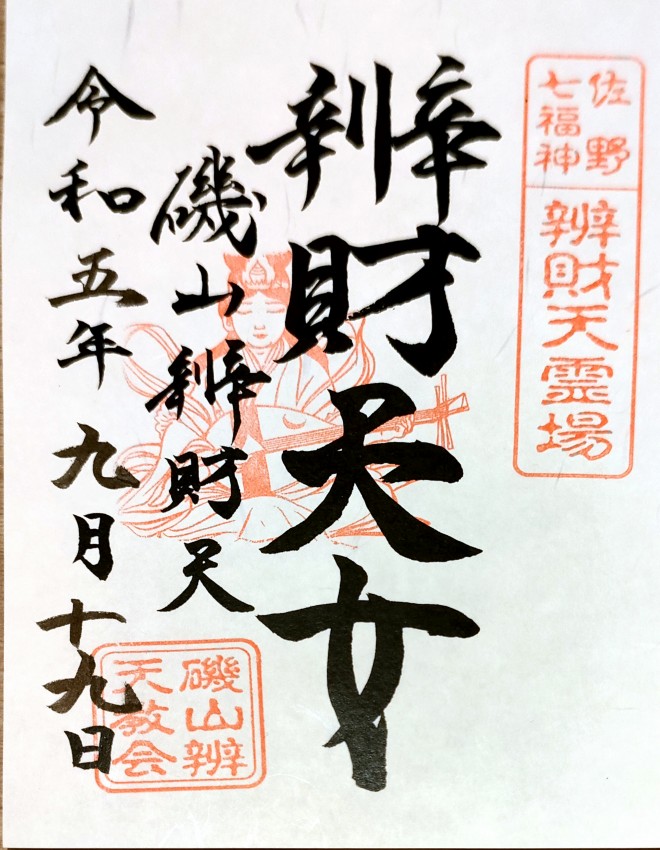 佐野
七福神
辨財天霊場
辨財天女
磯山辨財天
令和五年九月十九日
磯山辨
天教会